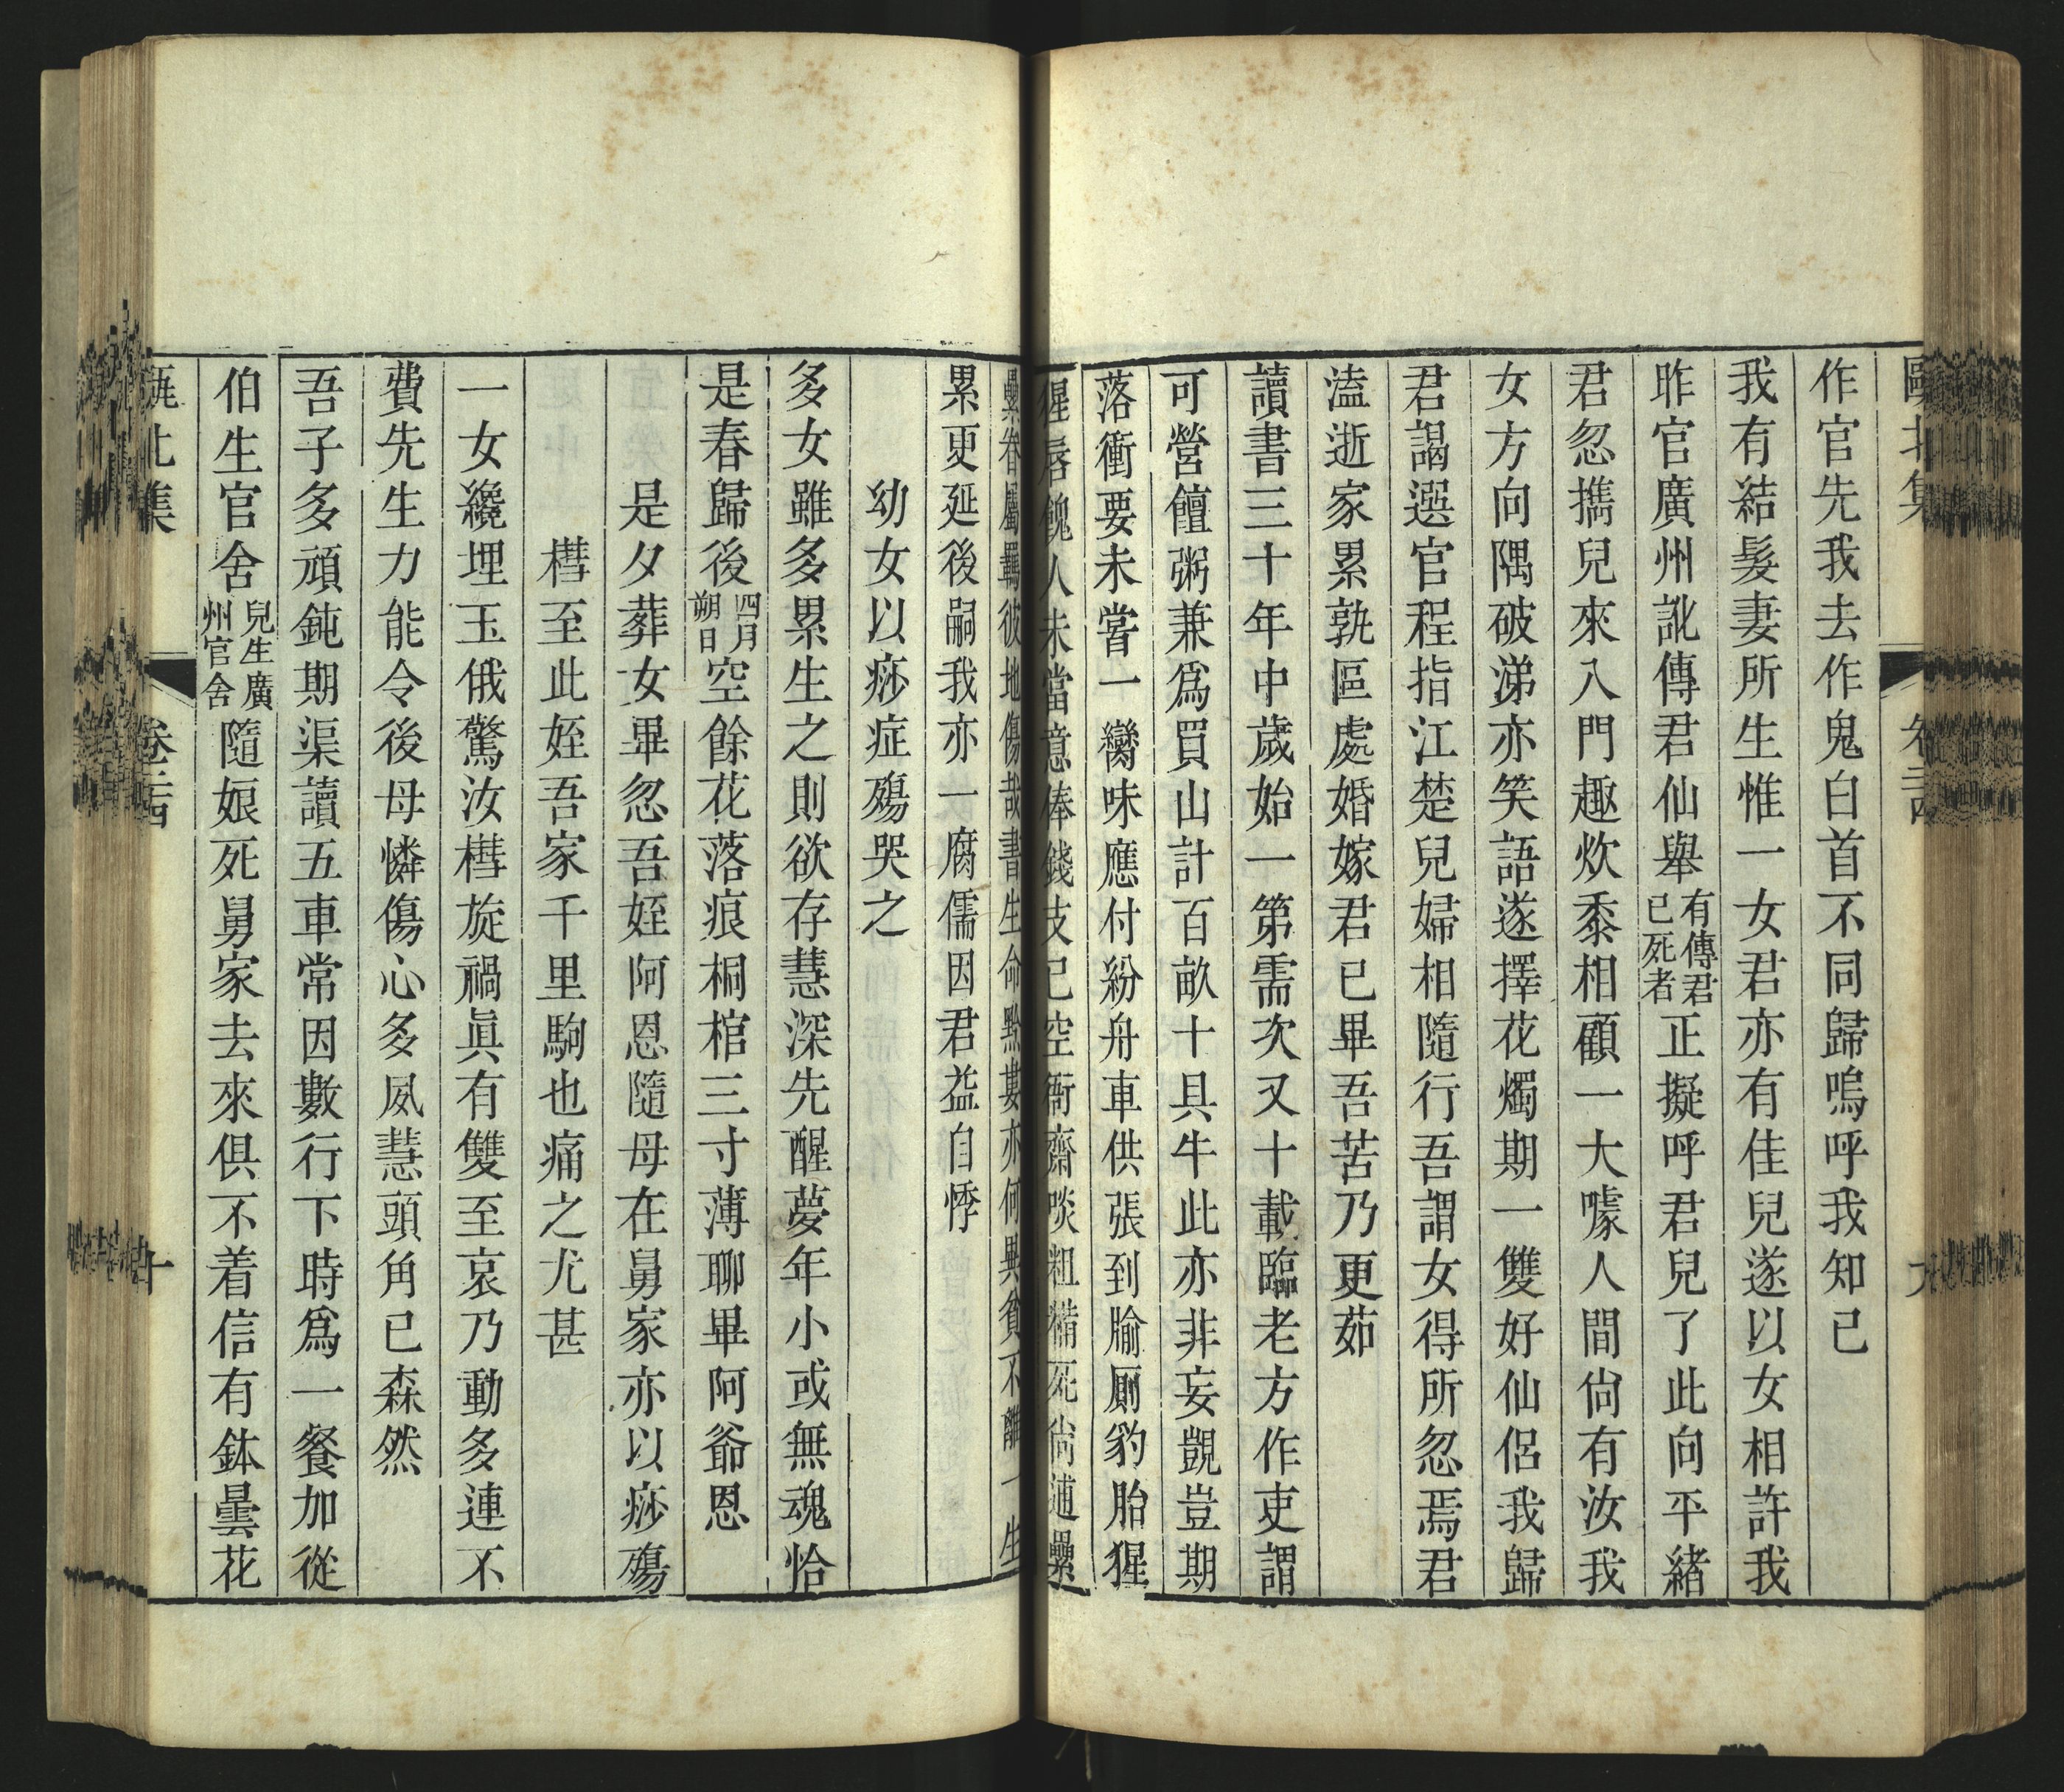 甌北集 卷二十四 九
作官先我去作鬼白首不同歸嗚呼我知己
我有結髮妻所生惟一女君亦有佳兒遂以女相許我
昨官廣州訛傳君仙舉有傳君已死者正擬呼君兒了此向平緒
君忽攜兒來入門趣炊黍相顧一大噱人間尙有汝我
女方向隅破涕亦笑語遂擇花燭期一雙好仙侶我歸
君謁選官程指江楚兒婦相隨行吾謂女得所忽焉君
溘逝家累孰區處婚嫁君已畢吾苦乃更茹
讀書三十年中歲始一第需次又十載臨老方作吏謂
可營饘粥兼爲買山計百畝十具牛此亦非妄覬豈期
落衝要未嘗一臠味應付紛舟車供張到腧厠豹胎猩
猩唇餽人未當意俸錢支已空衙齋啖粗糲死尙逋纍
纍眷屬羈彼地傷哉書生命黔婁亦何異貧不離一生
累更延後嗣我亦一腐儒因君益自悸
幼女以痧症殤哭之
多女雖多累生之則欲存慧深先醒夢年小或無魂恰
是春歸後四月朔日空餘花落痕桐棺三寸薄聊畢阿爺恩
是夕葬女畢忽吾姪阿恩隨母在舅家亦以痧殤
槥至此姪吾家千里駒也痛之尤甚
一女纔埋玉俄驚汝槥旋禍眞有雙至哀乃動多連不
費先生力能令後母憐傷心多夙慧頭角已森然
吾子多頑鈍期渠讀五車常因數行下時爲一餐加從
伯生官舍兒生廣州官舍隨娘死舅家去來俱不着信有鉢曇花
甌北集 卷二十四 十